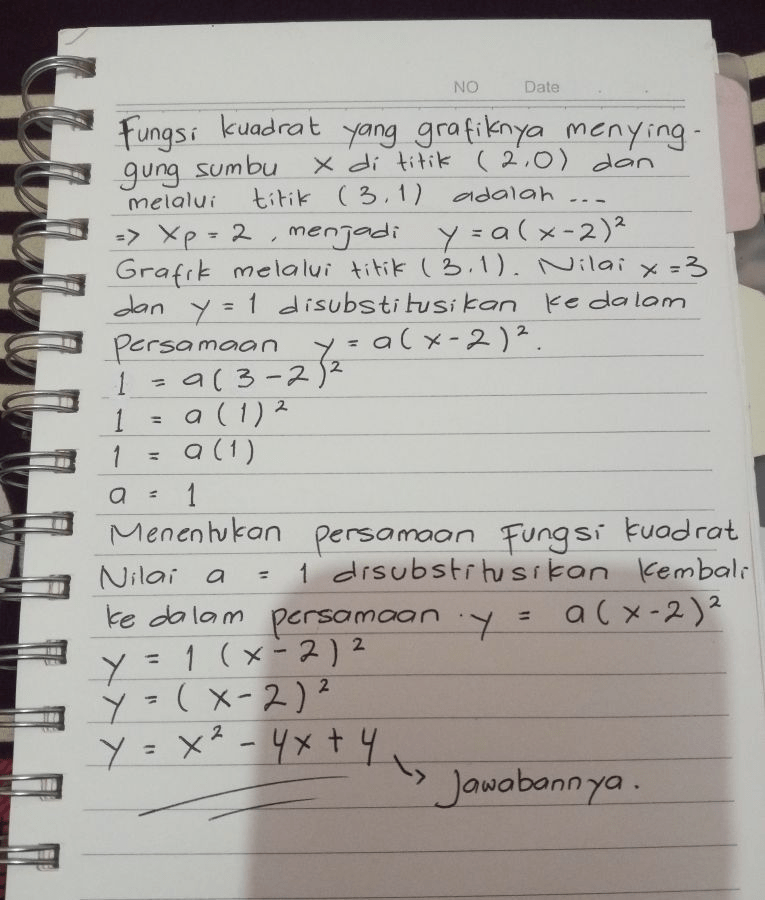 NO Date . .
Fungsi kuadrat yang grafiknya menying-
gung sumbu x di titik (2,0) dan
melalui titik (3,1) adalah ...
=> xp = 2, menjadi y = a(x-2)²
Grafik melalui titik (3,1). Nilai x = 3
dan y = 1 disubstitusikan ke dalam
persamaan y = a(x-2)².
1 = a(3-2)²
1 = a(1)²
1 = a(1)
a = 1
Menentukan persamaan Fungsi kuadrat
Nilai a = 1 disubstitusikan kembali
ke dalam persamaan . y = a(x-2)²
y = 1 (x-2)²
y = (x-2)²
y = x² - 4x + 4
↳ Jawabannya.